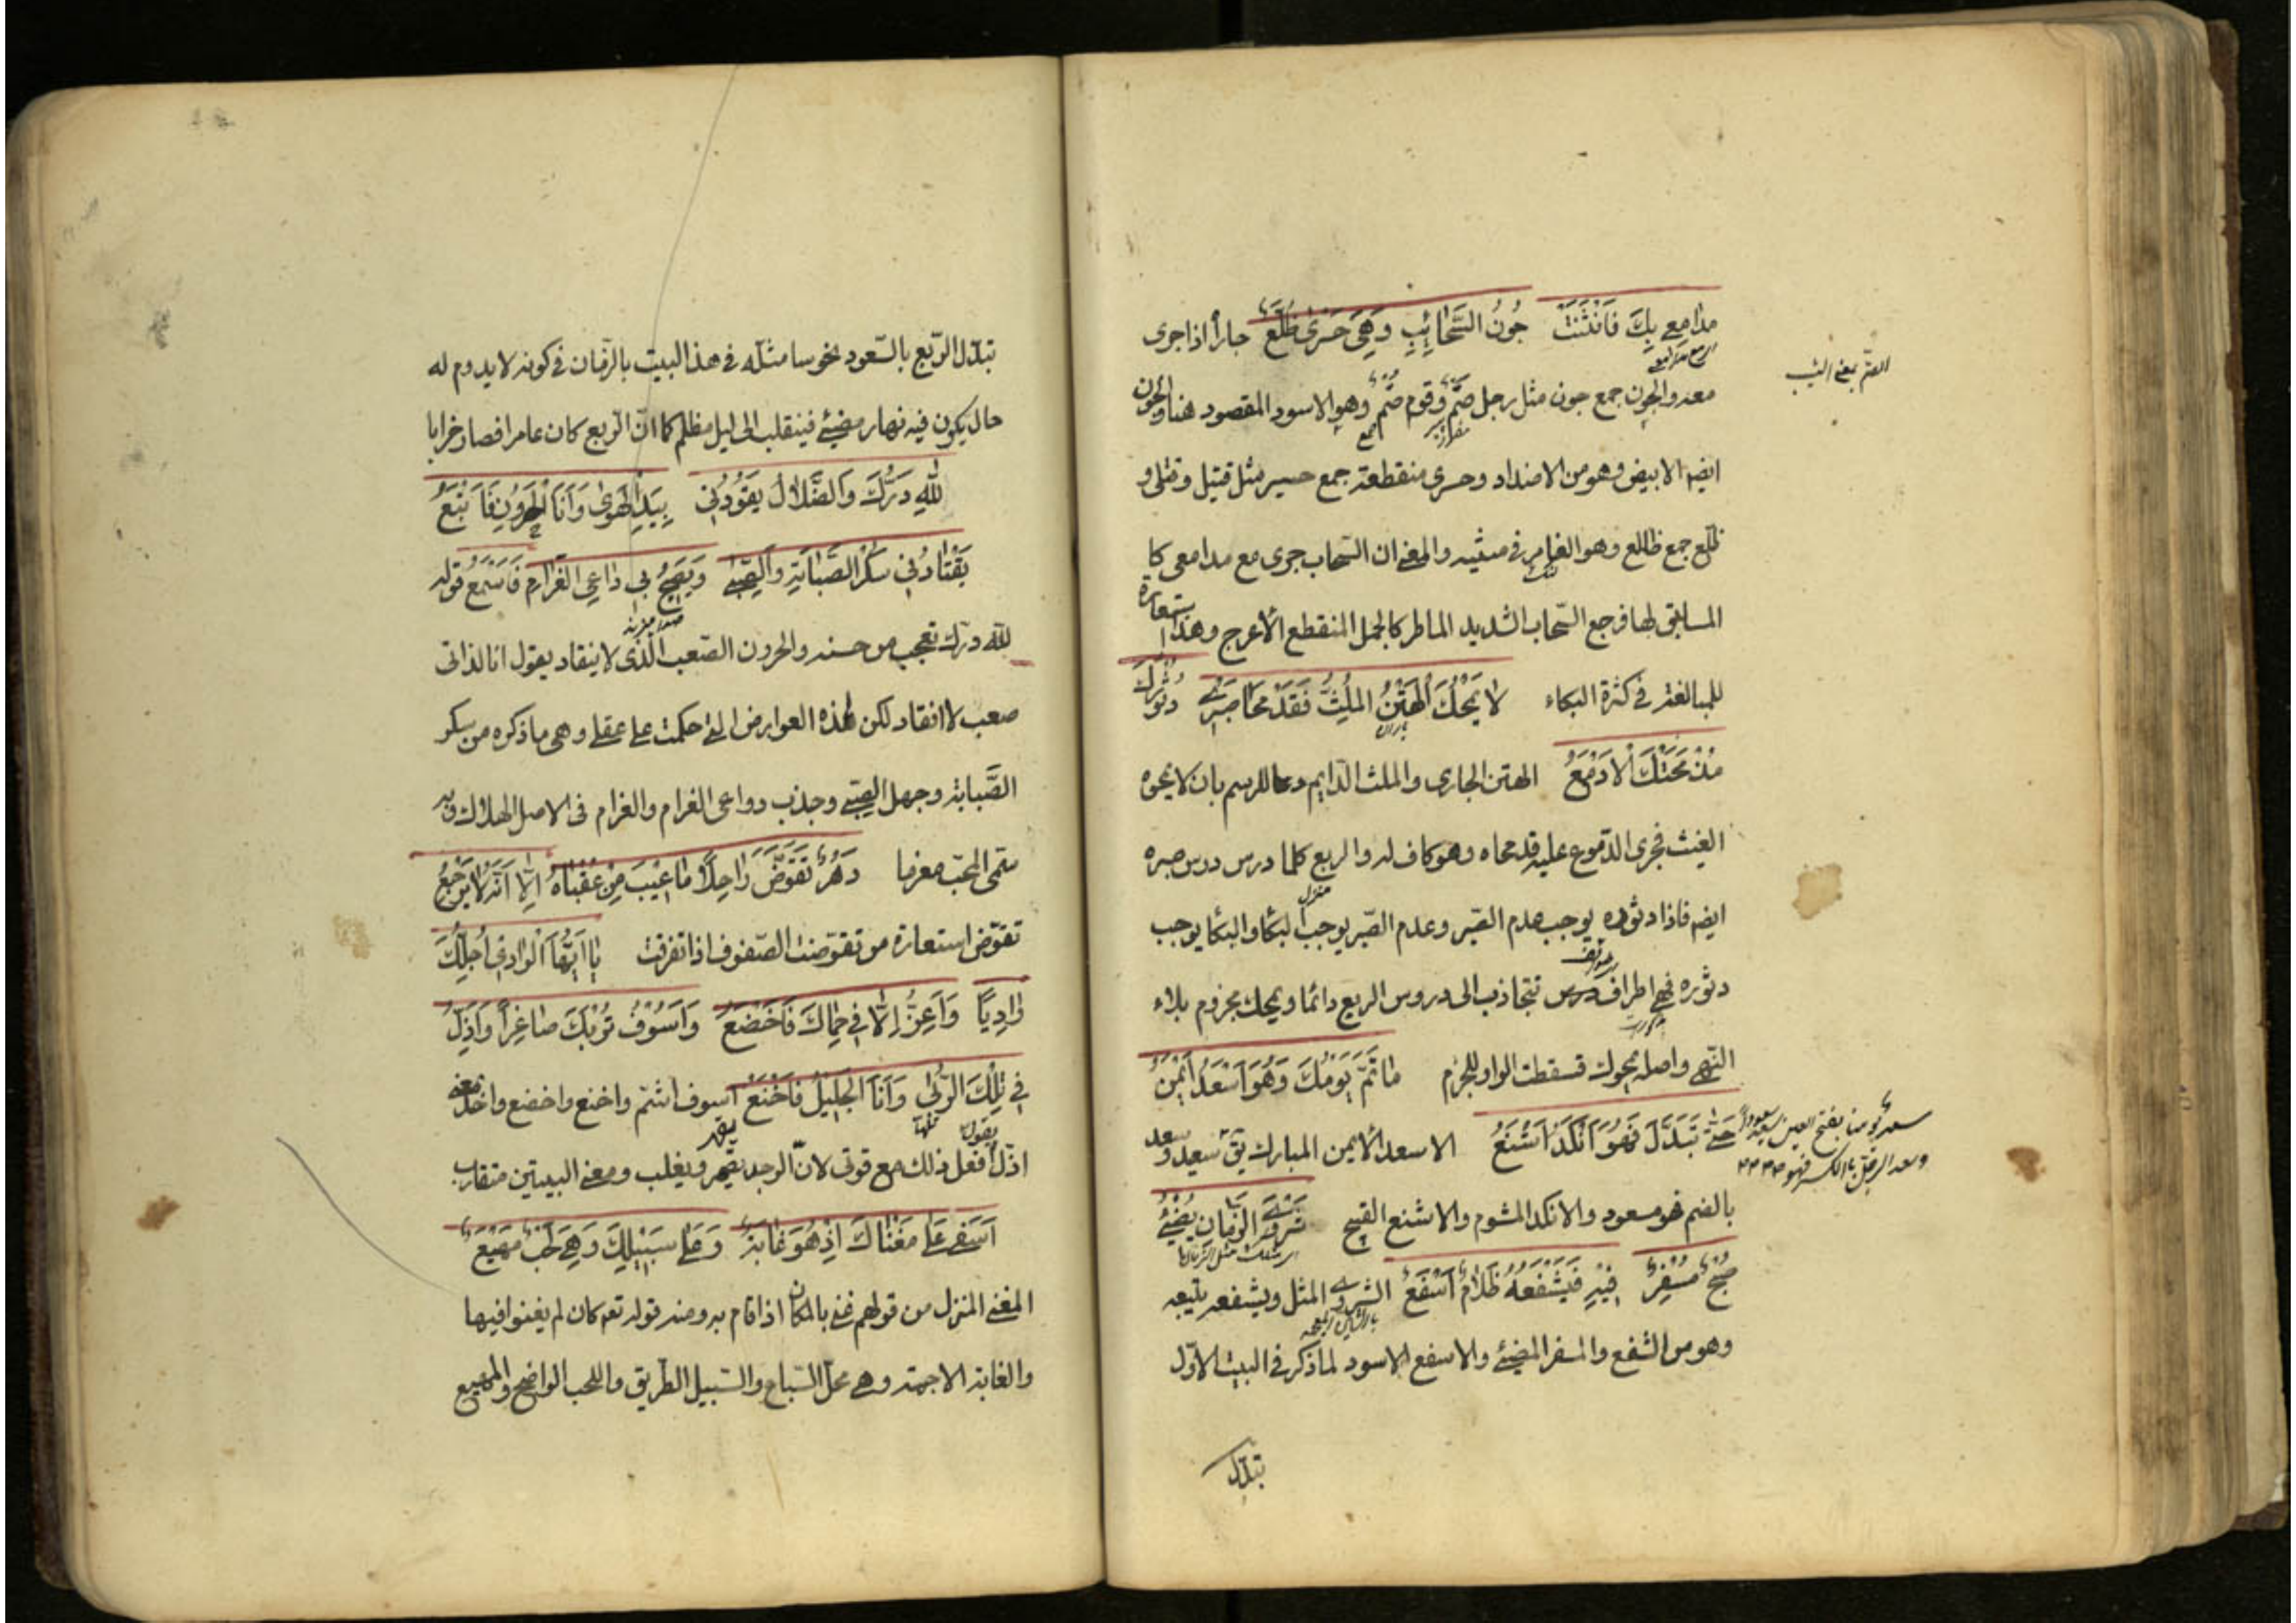 مَدامِعي بِكَ فَانْثَنَتْ جُونُ السَّحائِبِ وَهِيَ حَسْرىٰ ظُلَّعٌ جارأ اذا جرى
معه والجون جمع جون مثل رجل صَتْمٌ وقوم صُتْمٌ وهو الاسود المقصود هنا والجون
الصتم بمعنى
ايضا الابيض وهو من الاضداد وحسرى منقطعة جمع حسير مثل قتيل وقتلى و
ظلع جمع ظالع وهو الغامر في مشيه والمعنى ان السحاب جرى مع مدامعي كا
المسابق لها فرجع السّحاب الشديد الماطر كالجمل المنقطع الأعرج وهذا استعارة
للمبالغة في كثرة البكاء لا يَمْحُكَ الْهَتِنُ المُلِثُّ فَقَدْ مَحا صَبْري دُثُورُكَ
مُذْ مَحَتْكَ الْاَدْمُعُ الهتن الجاري والملث الدّايم دعا للرسم بان لا يمحوه
الغيث فجرى الدّموع عليه قد محاه وهو كاف له والربع كلما درس درس صبره
ايضا فاذا دثوره يوجب عدم الصّبر وعدم الصّبر يوجب البكا والبكا يوجب
دثوره فهي اطراف تتجاذب الى دروس الربع دائما ويمحك مجزوم بلاء
النّهي واصله يمحوك فسقطت الواو للجزم ما تَمَّ يَوْمُكَ وَهُوَ اَسْعَدُ اَيْمَنٌ
حَتّى تَبَدَّلَ فَهُوَ اَنْكَدُ اَشْنَعُ الاسعد الأيمن المبارك يق سعيد وسعد
سعد يومنا بفتح العين سعودا
وسعد الرجل بالكسر فهو
بالضم فهو مسعود والانكد المشوم والاشنع القبيح شَرْوَى الزَّمانِ يُضِيءُ
صُبْحٌ مُسْفِرٌ فيهِ فَيَشْفَعُهُ ظَلامٌ اَسْفَعُ الشروى المثل ويشفعه يتبعه
وهو من الشفع والمسفر المضيئ والاسفع الاسود لما ذكر في البيت الاوّل
تبدّل
تبدّل الرّبع بالسّعود نحوسا مثّله في هذا البيت بالزّمان في كونه لا يدوم له
حال يكون فيه نهار مضيئ فينقلب الى ليل مظلم كما انّ الرّبع كان عامرا فصار خرابا
لِلّهِ دَرُّكَ وَالضَّلالُ يَقُودُني بِيَدِ الْهَوىٰ وَاَنَا الْحَرُونُ فَاَتْبَعُ
يَقْتادُني سُكْرُ الصَّبابَةِ وَالصِّبىٰ وَيَصيحُ بي داعِي الْغَرامِ فَاَسْمَعُ قوله
لله درّك تعجب من حسنه والحرون الصّعب الّذى لا ينقاد يقول انا لذاتى
صعب لا انقاد لكن لهذه العوارض التي حكمت على عقلي وهي ما ذكره من سكر
الصَّبابة وجهل الصّبى وجذب دواعى الغرام والغرام في الاصل الهلاك وبه
سمّى المحبّ مغرما دَهْرٌ تَقَوَّضَ راحِلاً ما عيبَ مِنْ عُقْباهُ اِلّا اَنَّهُ لا يَرْجِعُ
تقوّض استعارة من تقوّضت الصّفوف اذا تفرقت يا اَيُّهَا الْوادي اُجِلُّكَ
وادِيًا وَاَعِزُّ اِلّا في حِماكَ فَاَخْضَعُ وَاَسُوفُ تُرْبَكَ صاغِراً وَاَذِلُّ
في تِلْكَ الرُّبىٰ وَاَنَا الْجَليلُ فَاَخْنَعُ اسوف اشمّ واخنع واخضع واخذ معنى
اذلّ يقول افعل ذلك مع قوتى لانّ الوجد يقهر ويغلب ومعنى البيتين متقارب
اَسَفي عَلىٰ مَغْناكَ اِذْ هُوَ غابَةٌ وَعَلىٰ سَبيلِكَ وَهِيَ لَحْبٌ مَهْيَعٌ
المغنى المنزل من قولهم غنى بالمكان اذا قام به ومنه قوله تع كان لم يغنوا فيها
والغابة الاجمة وهي محلّ السّباع والسّبيل الطّريق واللحب الواضح والمهيع